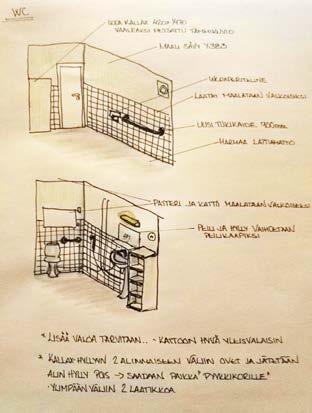 WC
IKEA KALLAX 42CM X 147CM
MAALI SÄVY Y383
LAATAT MAALATAAN VALKOISIKSI
UUSI TUKIKAIDE 900MM
HARMAA LATTIAMATTO
PATTERI JA KATTO MAALATAAN VALKOISEKSI
PEILI JA HYLLY VAIHDETAAN
PEILIKAAPIKSI
* LISÄÄ VALOA TARVITAAN.. - KATTOON HYVÄ YLEISVALAISIN
* KALLAX-HYLLYYN 2 ALIMMAISEEN VÄLIIN OVET JA JÄTETÄÄN
ALIN HYLLY POIS → SAADAAN PAIKKA "PYYKKIKORILLE"
- YLIMPÄÄN VÄLIIN 2 LAATIKKOA